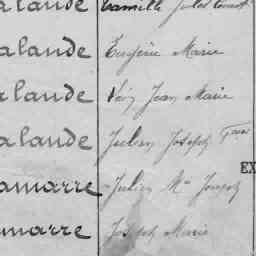 alande Camille Jules Ernest
alande Eugène Marie
alande Jean Marie
alande Julien Joseph
EX
amarre Julien Mie Joseph
marre Joseph Marie